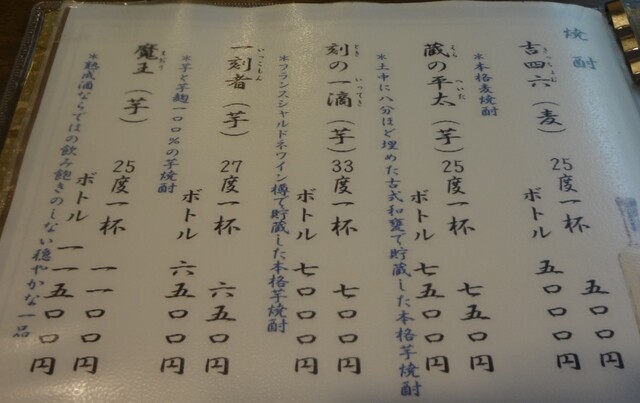 焼酎
吉四六（麦） 25度一杯 五〇〇円
きっちょむ
ボトル 五〇〇〇円
＊本格麦焼酎
蔵の平太（芋） 25度一杯 七五〇円
くら へいた
ボトル 七五〇〇円
＊土中に八分ほど埋めた古式和甕で貯蔵した本格芋焼酎
刻の一滴（芋） 33度一杯 七〇〇円
とき いってき
ボトル 七〇〇〇円
＊フランスシャルドネワイン樽で貯蔵した本格芋焼酎
一刻者（芋） 27度一杯 六五〇円
いっこもん
ボトル 六五〇〇円
＊芋と芋麹一〇〇％の芋焼酎
魔王（芋） 25度一杯 一一〇〇円
まおう
ボトル 一一五〇〇円
＊熟成酒ならではの飲み飽きのしない穏やかな一品